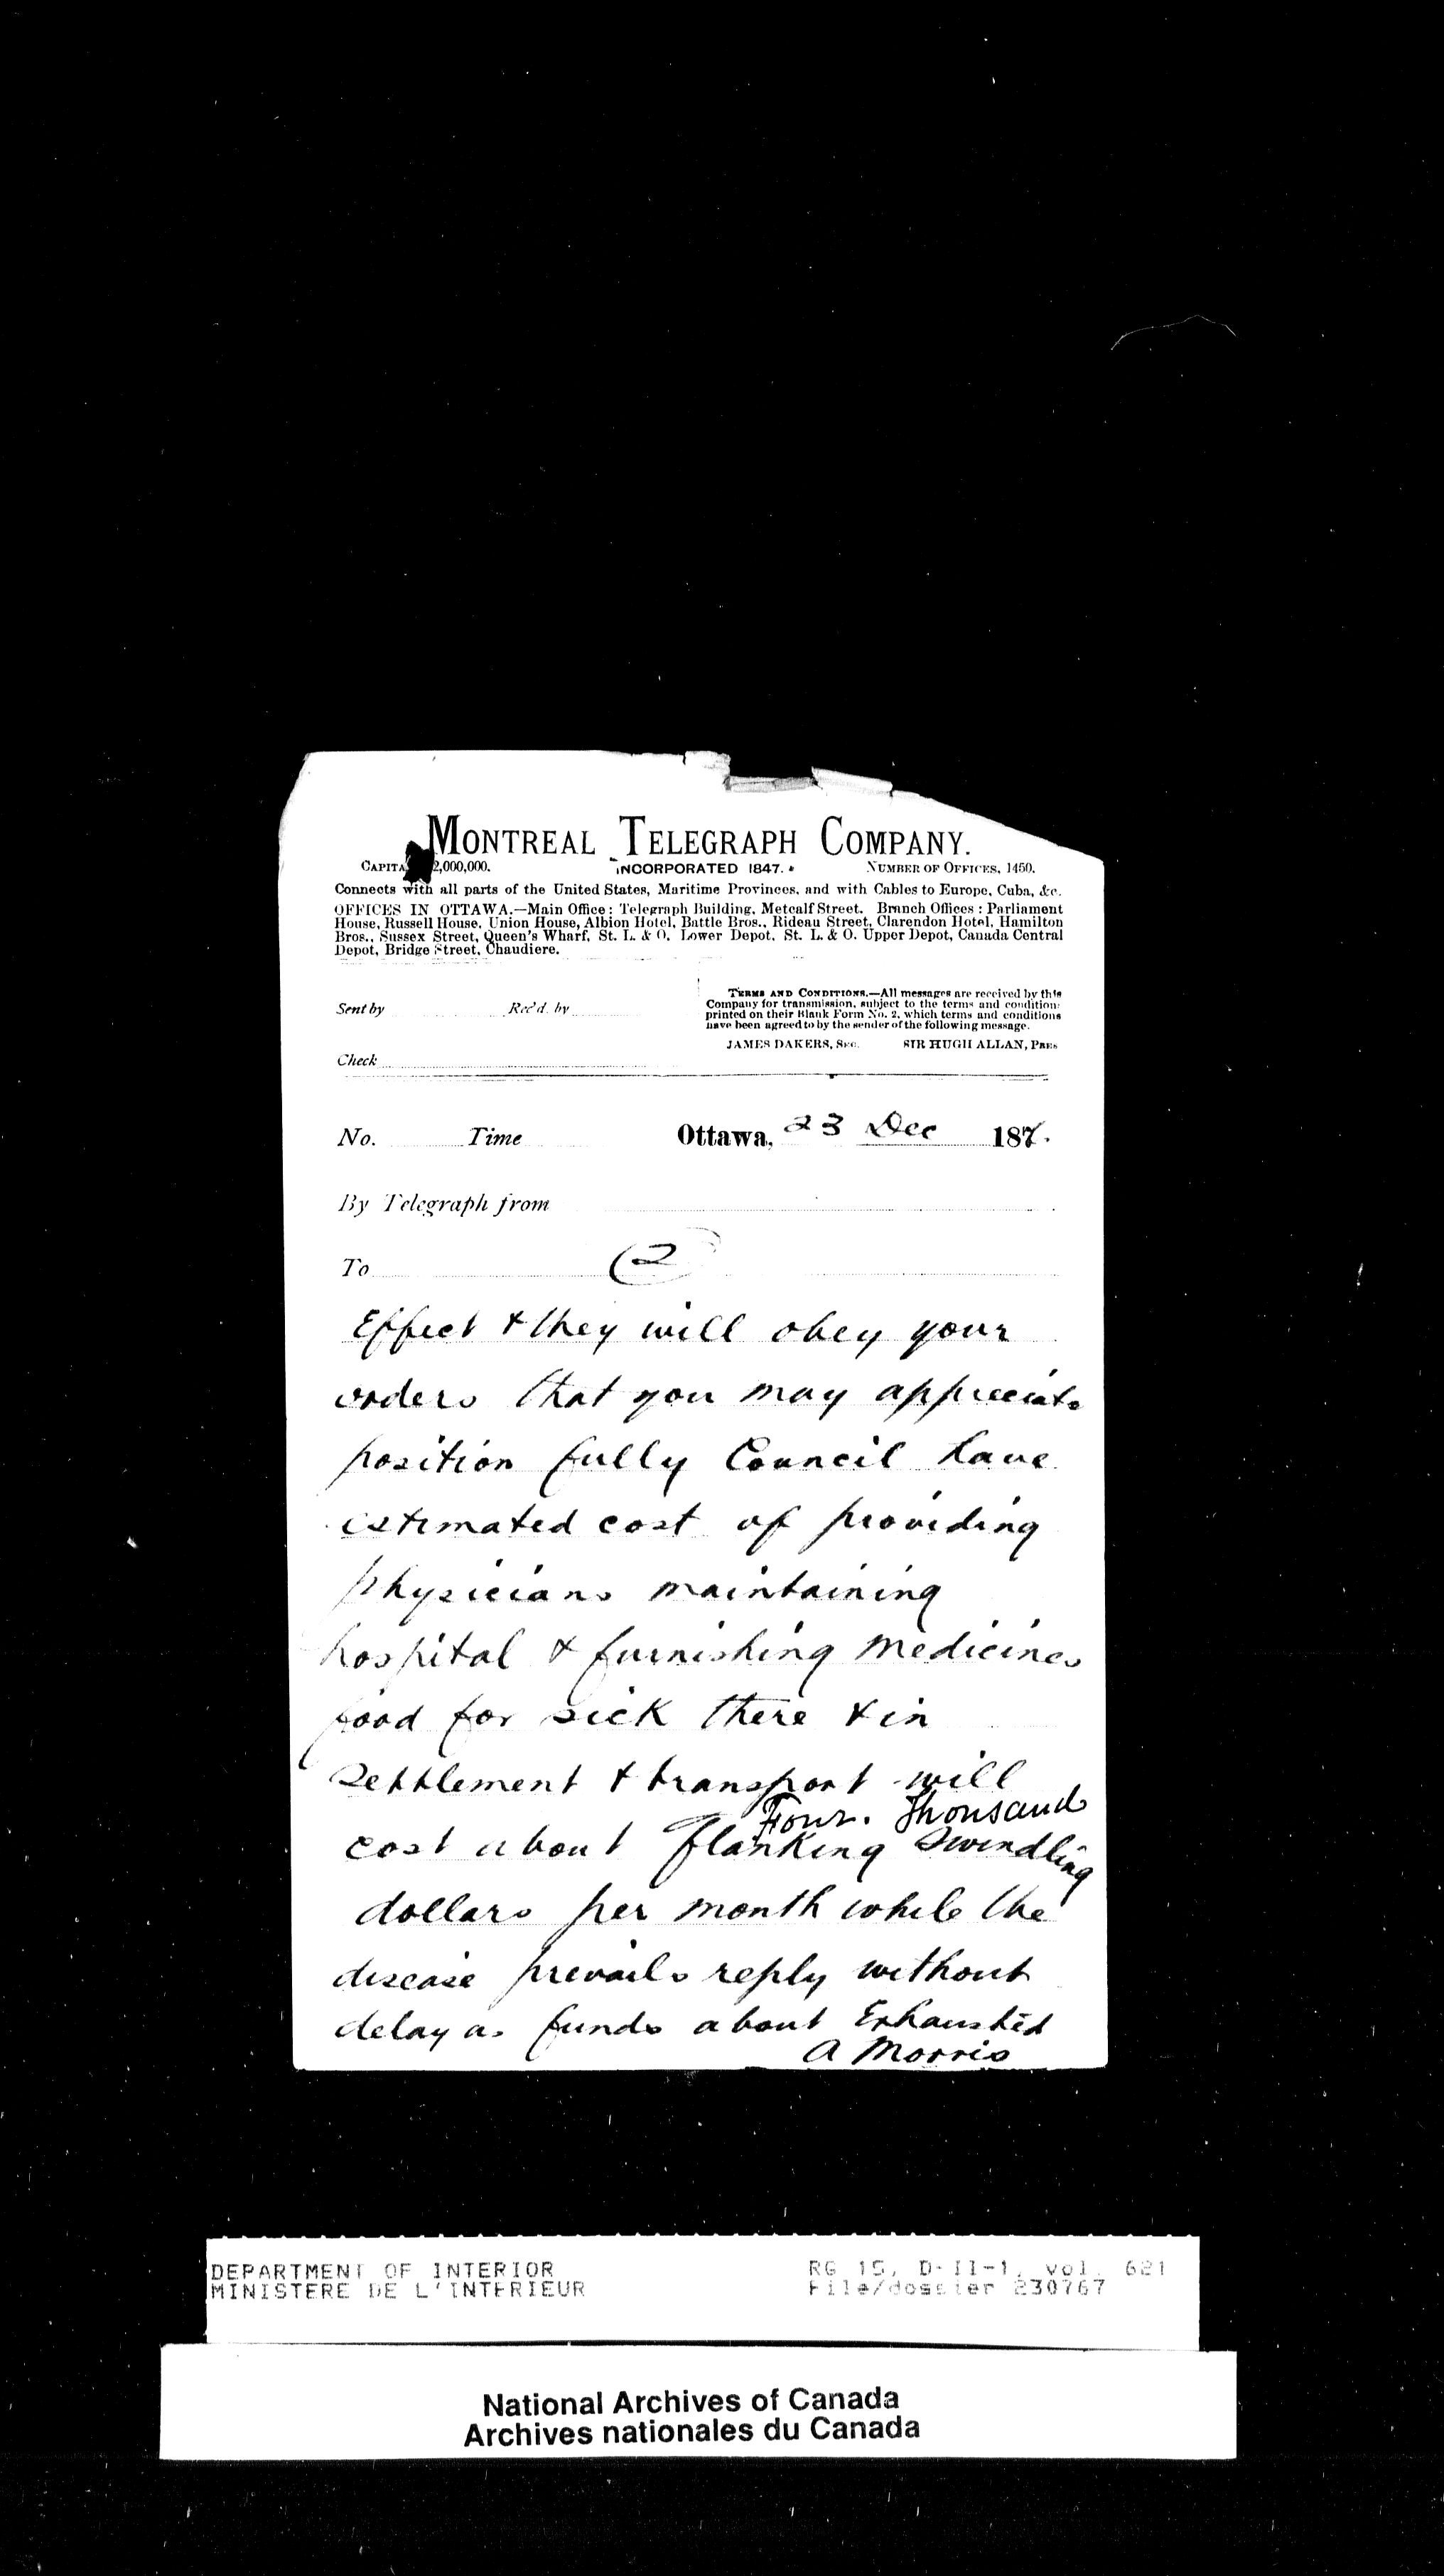 MONTREAL TELEGRAPH COMPANY.
CAPITA 2,000,000. INCORPORATED 1847. NUMBER OF OFFICES, 1450.
Connects with all parts of the United States, Maritime Provinces, and with Cables to Europe, Cuba, &c.
OFFICES IN OTTAWA.—Main Office: Telegraph Building, Metcalf Street. Branch Offices: Parliament
House, Russell House, Union House, Albion Hotel, Battle Bros., Rideau Street, Clarendon Hotel, Hamilton
Bros., Sussex Street, Queen's Wharf, St. L. & O. Lower Depot, St. L. & O. Upper Depot, Canada Central
Depot, Bridge Street, Chaudiere.
TERMS AND CONDITIONS.—All messages are received by this
Company for transmission, subject to the terms and condition:
printed on their Blank Form No. 2, which terms and conditions
have been agreed to by the sender of the following message.
Sent by Rec'd. by
JAMES DAKERS, SEC. SIR HUGH ALLAN, PRES
Check
No. Time Ottawa, 23 Dec 187
By Telegraph from
To (2)
Effect & they will obey your
orders that you may appreciate
position fully Council have
estimated cost of providing
physicians maintaining
hospital & furnishing medicines
food for sick there & in
settlement & transport will
Four. Thousand
cost about flanking swindling
dollars per month while the
disease prevails reply without
delay as funds about Exhausted
A Morris
DEPARTMENT OF INTERIOR RG 15, D-II-1, vol. 621
MINISTERE DE L'INTERIEUR File/dossier 230767
National Archives of Canada
Archives nationales du Canada